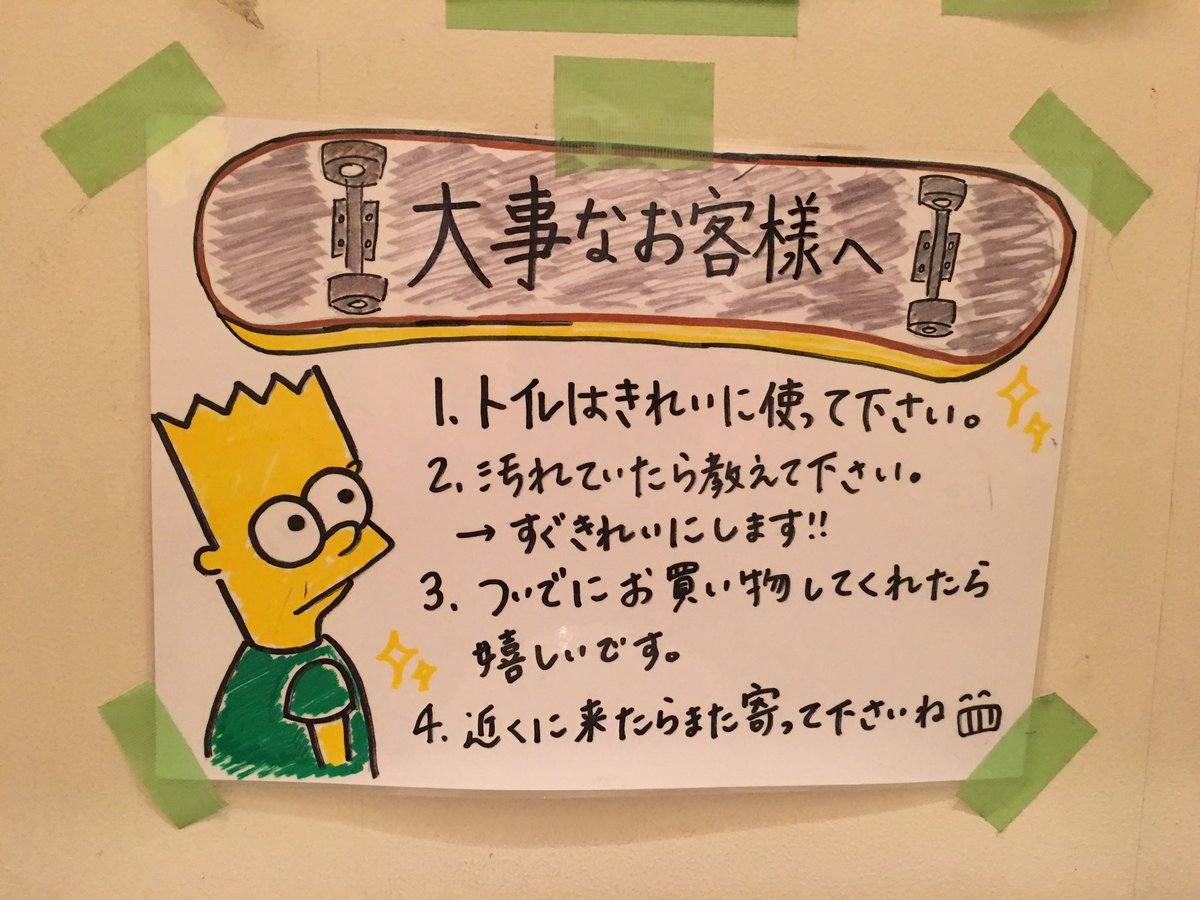 大事なお客様へ
1. トイレはきれいに使って下さい。
2. 汚れていたら教えて下さい。
→ すぐきれいにします!!
3. ついでにお買い物してくれたら
嬉しいです。
4. 近くに来たらまた寄って下さいね